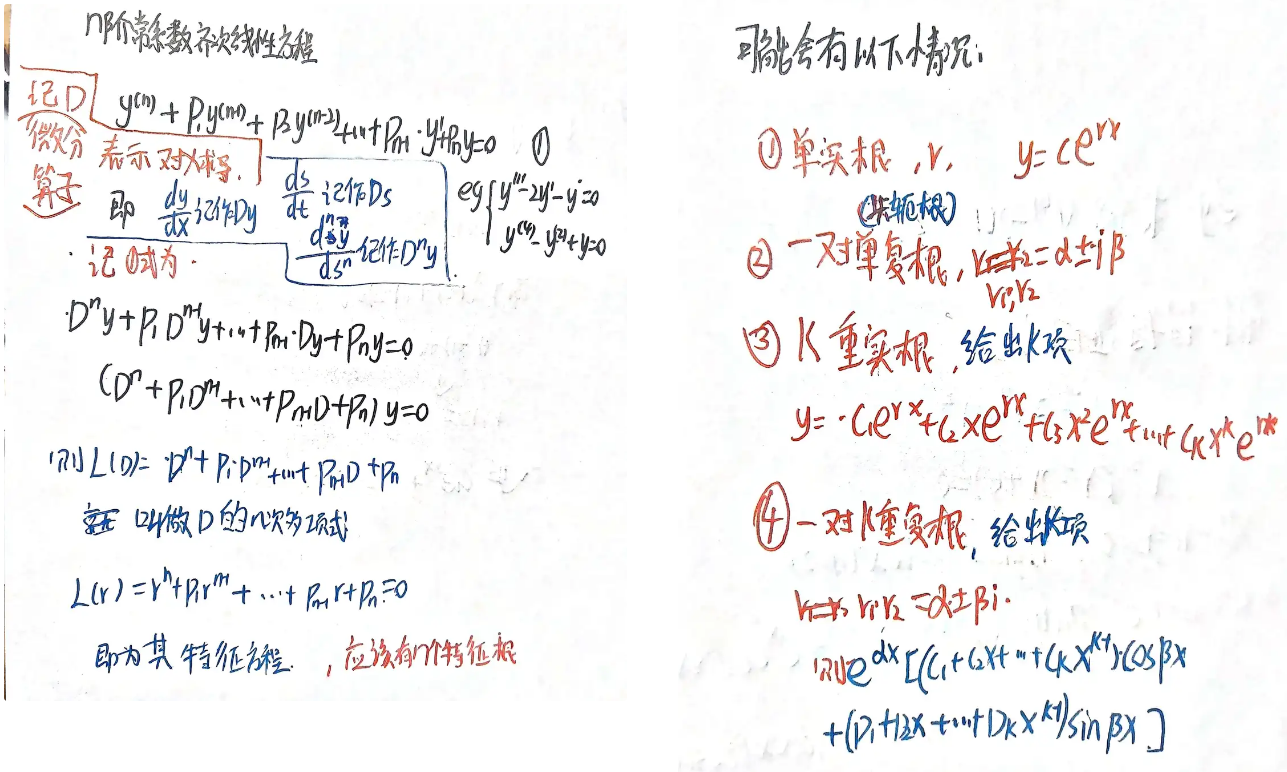 n阶常系数齐次线性方程
记D
(微分
算子)
y⁽ⁿ⁾ + P₁y⁽ⁿ⁻¹⁾ + P₂y⁽ⁿ⁻²⁾ + ... + Pₙ₋₁·y' + Pₙy = 0 ①
表示对x求导.
即 dy/dx 记作Dy
ds/dt 记作Ds
dⁿy/dsⁿ 记作Dⁿy
eg { y''' - 2y' - y = 0
y⁽⁴⁾ - y⁽²⁾ + y = 0
记①式为.
Dⁿy + P₁Dⁿ⁻¹y + ... + Pₙ₋₁·Dy + Pₙy = 0
(Dⁿ + P₁Dⁿ⁻¹ + ... + Pₙ₋₁D + Pₙ) y = 0
则 L(D) = Dⁿ + P₁·Dⁿ⁻¹ + ... + Pₙ₋₁D + Pₙ
叫做D的n次多项式
L(r) = rⁿ + P₁rⁿ⁻¹ + ... + Pₙ₋₁r + Pₙ = 0
即为其特征方程. ,应该有n个特征根
可能会有以下情况:
①单实根,r, y = Ce^(rx)
(共轭根)
②一对单复根, = α ± iβ
r₁,r₂
③ K重实根,给出K项
y = C₁e^(rx) + C₂xe^(rx) + C₃x²e^(rx) + ... + Cₖxᵏe^(rx)
④一对K重复根,给出K项
r₁ r₂ = α ± βi.
则 e^(αx) [(C₁ + C₂x + ... + Cₖxᵏ⁻¹)·cosβx
+ (D₁ + D₂x + ... + Dₖxᵏ⁻¹) sinβx]